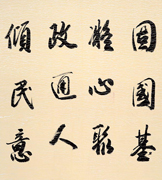 固國基
凝心聚
政通人
傾民意